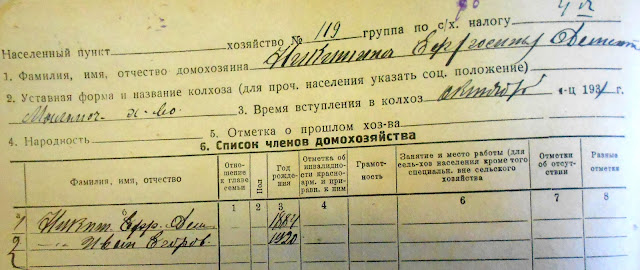 Населенный пункт хозяйство № 119 группа по с/х. налогу
1. Фамилия, имя, отчество домохозяина Никитина Ефросинья Демент
2. Уставная форма и название колхоза (для проч. населения указать соц. положение)
3. Время вступления в колхоз октябрь м-ц 1931 г.
4. Народность 5. Отметка о прошлом хоз-ва
6. Список членов домохозяйства
Фамилия, имя, отчество Отношение к главе семьи Пол Год рождения Отметка об инвалидности красноарм. и приравн. к ним Грамотность Занятие и место работы (для сель-хоз населения кроме того специальн. вне сельского хозяйства Отметки об отсутствии Разные отметки
1 2 3 4 5 6 7 8
1/ Никит. Ефр. Дем. 1884
2 —"— Иван Егоров 1920